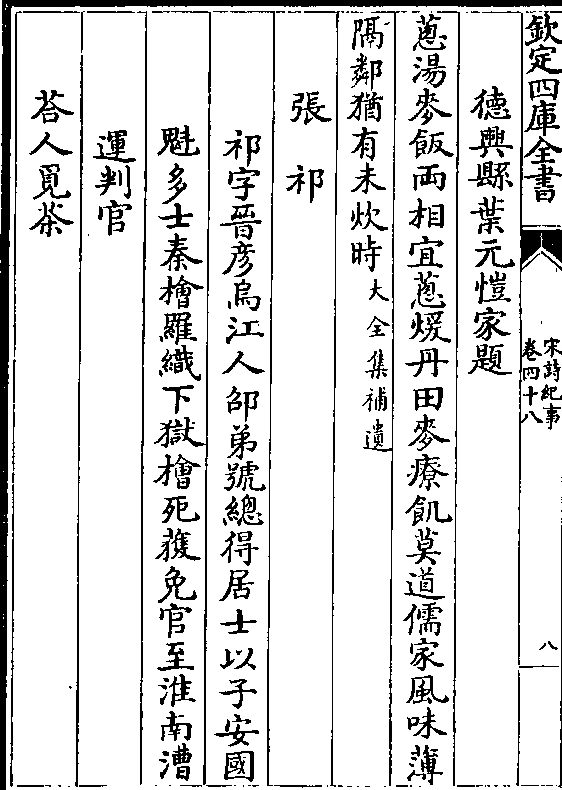 欽定四庫全書
宋詩紀事
卷四十八
八
德興縣葉元愷家題
蔥湯麥飯両相宜蔥煖丹田麥療飢莫道儒家風味薄
隔鄰猶有未炊時大全集補遺
張祁
祁字晉彥烏江人邵弟號總得居士以子安國
魁多士秦檜羅織下獄檜死獲免官至淮南漕
運判官
荅人覓茶